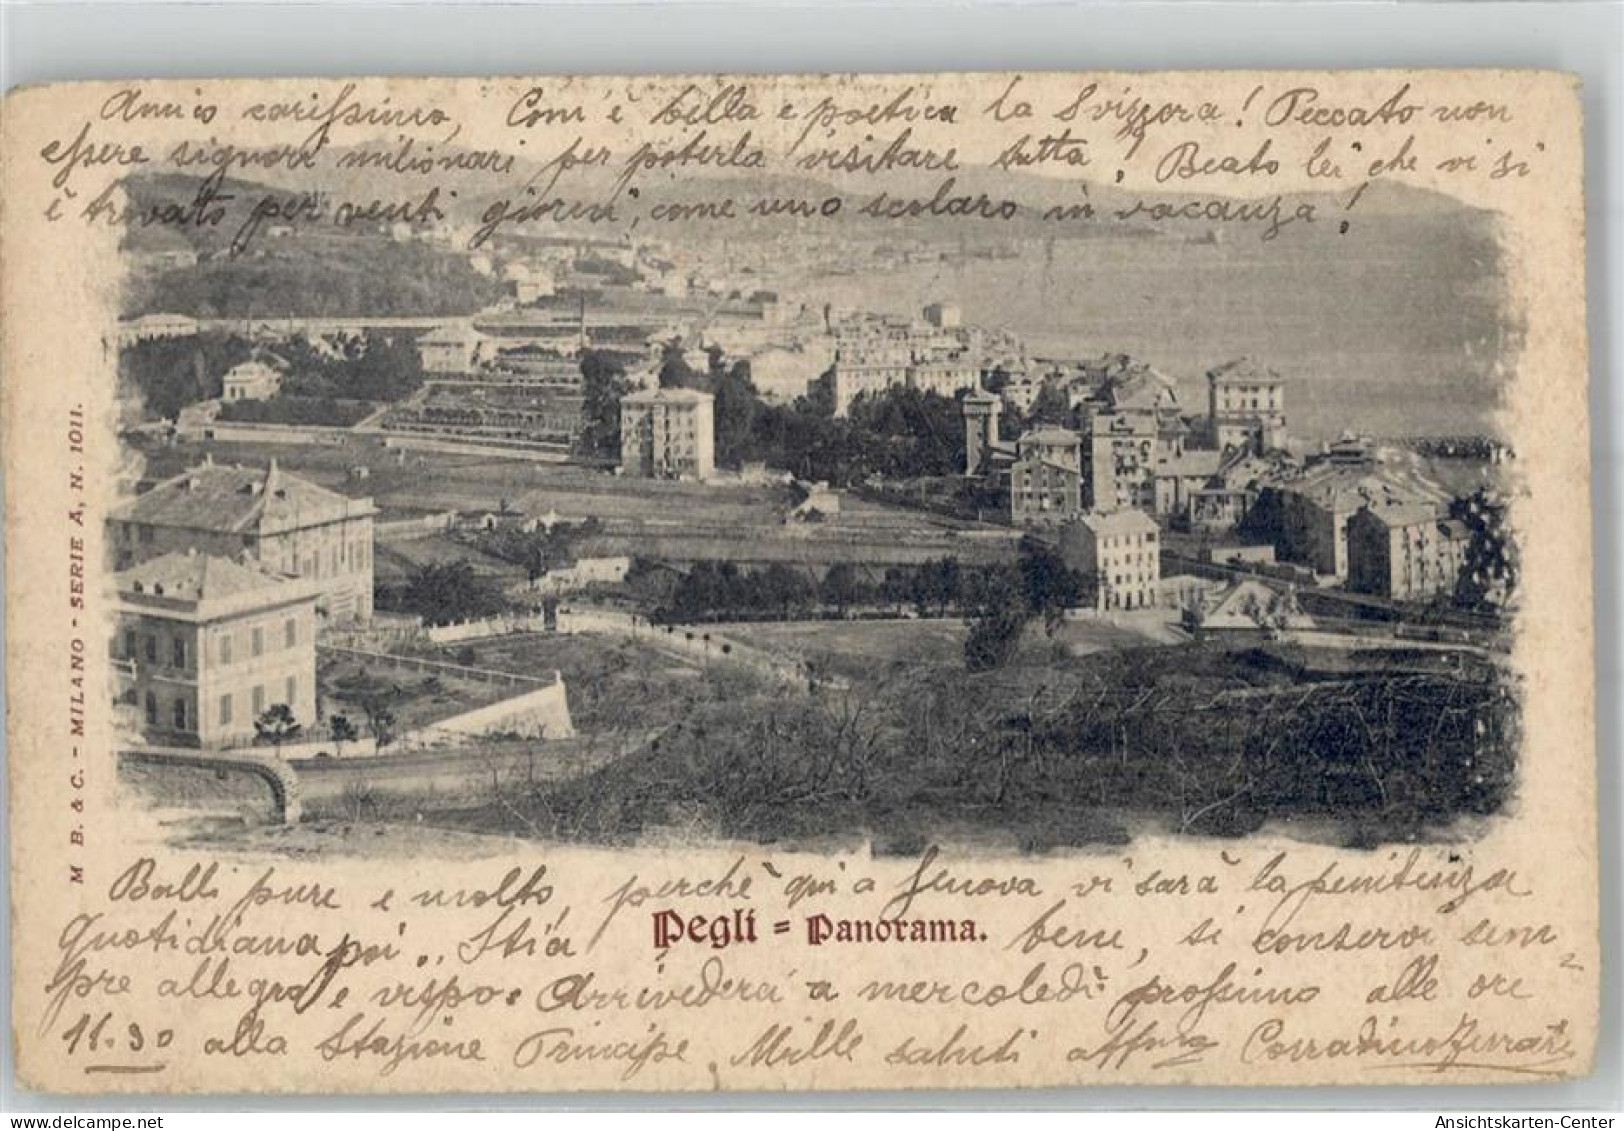 Amico carissimo, Com'è bella e poetica la Svizzera! Peccato non
essere signori milionari per poterla visitare tutta! Beato lei che vi si
è trovato per venti giorni, come uno scolaro in vacanza!
M B. & C. - MILANO - SERIE A, N. 1011.
Balli pure e molto, perchè qui a Genova vi sarà la penitenza
quotidiana poi.. Stia bene, si conservi sem
Pegli = Panorama.
pre allegro e vispo. Arrivederci a mercoledì prossimo alle ore
11.30 alla Stazione Principe. Mille saluti Corradino
Ansichtskarten-Center